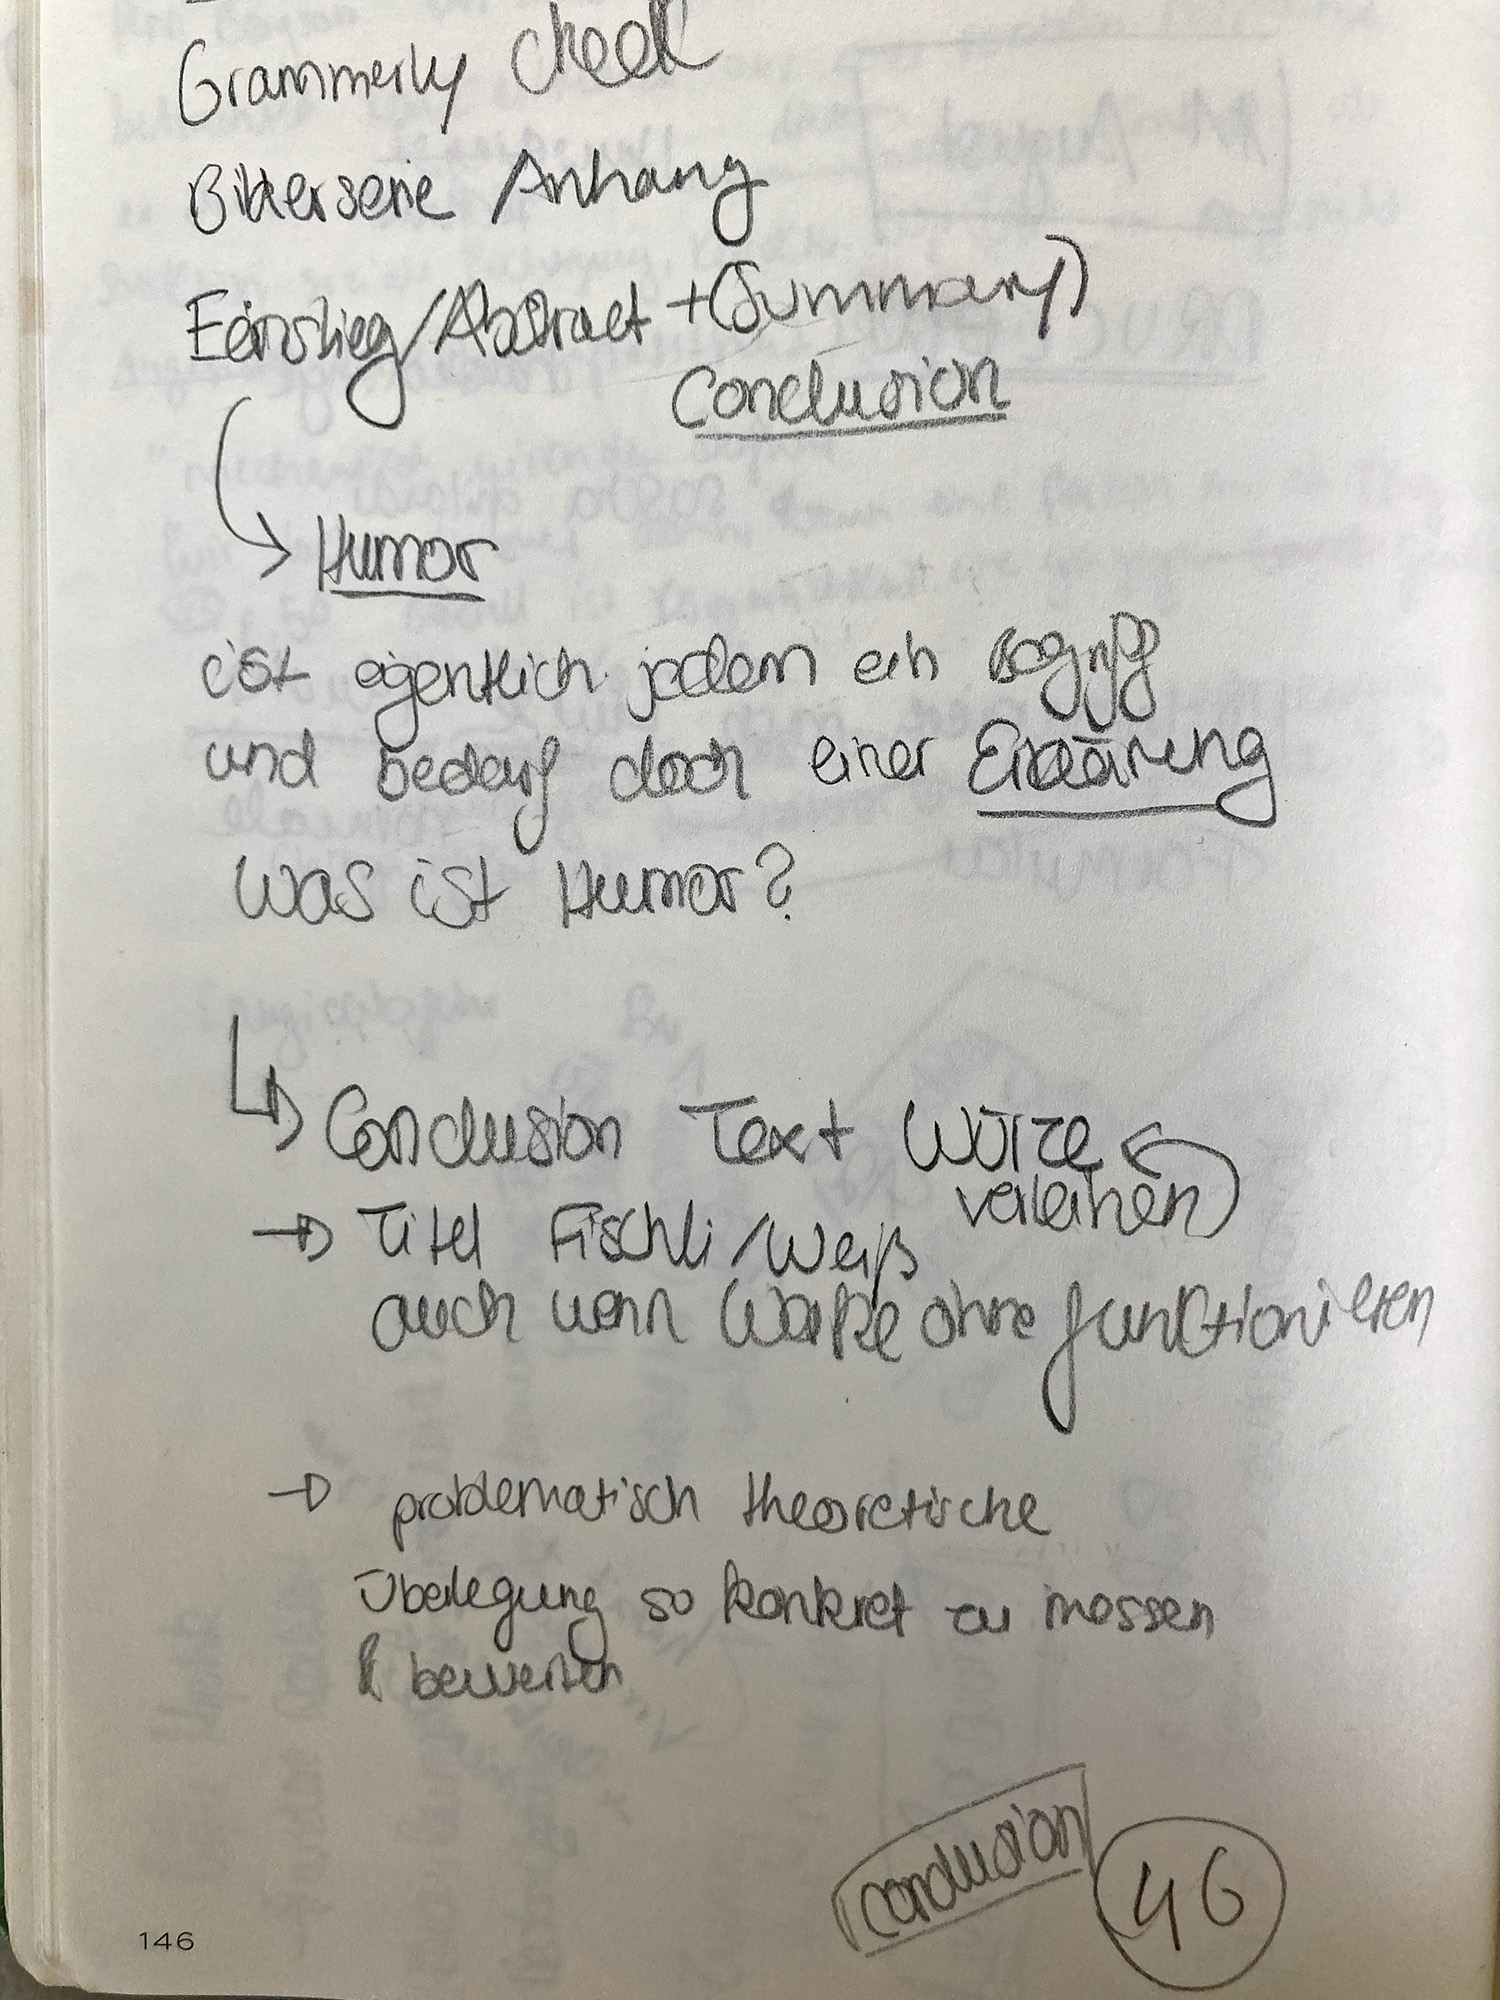 Grammerly check
Bilderserie Anhang
Einstieg/Abstract + (Summary)
Conclusion
Humor
ist eigentlich jedem ein Begriff
und bedarf doch einer Erklärung
Was ist Humor?
Conclusion Text Würze
verleihen
→ Titel Fischli/Weiß
auch wenn Werke ohne funktionieren
→ problematisch theoretische
Überlegung so konkret zu messen
& bewerten
conclusion
46
146